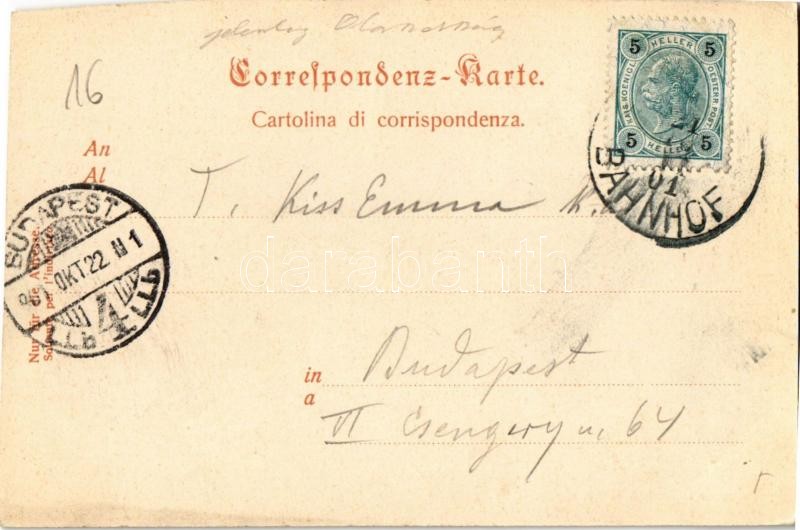 jelenleg Olaszország
16
Correspondenz-Karte.
Cartolina di corrispondenza.
5 HELLER 5
KAIS. KOENIGL. OESTERR. POST
5 HELLER 5
21
01
BAHNHOF
An
Al
T. Kiss Emma
BUDAPEST
OKT 22
4
Nur für die Adresse.
Solo per l'indirizzo.
darabanth
in
a
Budapest
VI Csengery u. 64